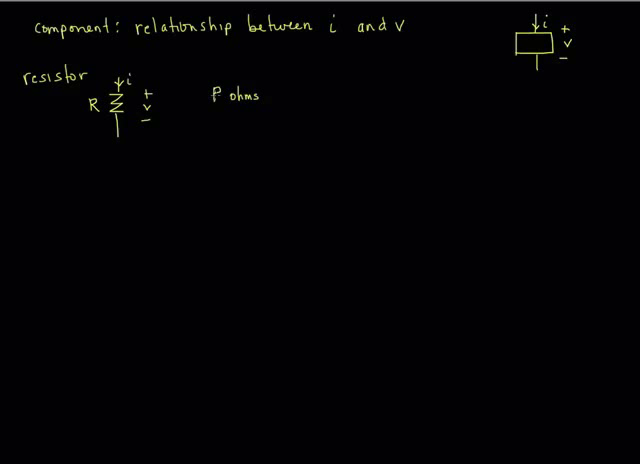 component: relationship between i and v
i
+
v
−
resistor
i
R
+
v
−
ohms